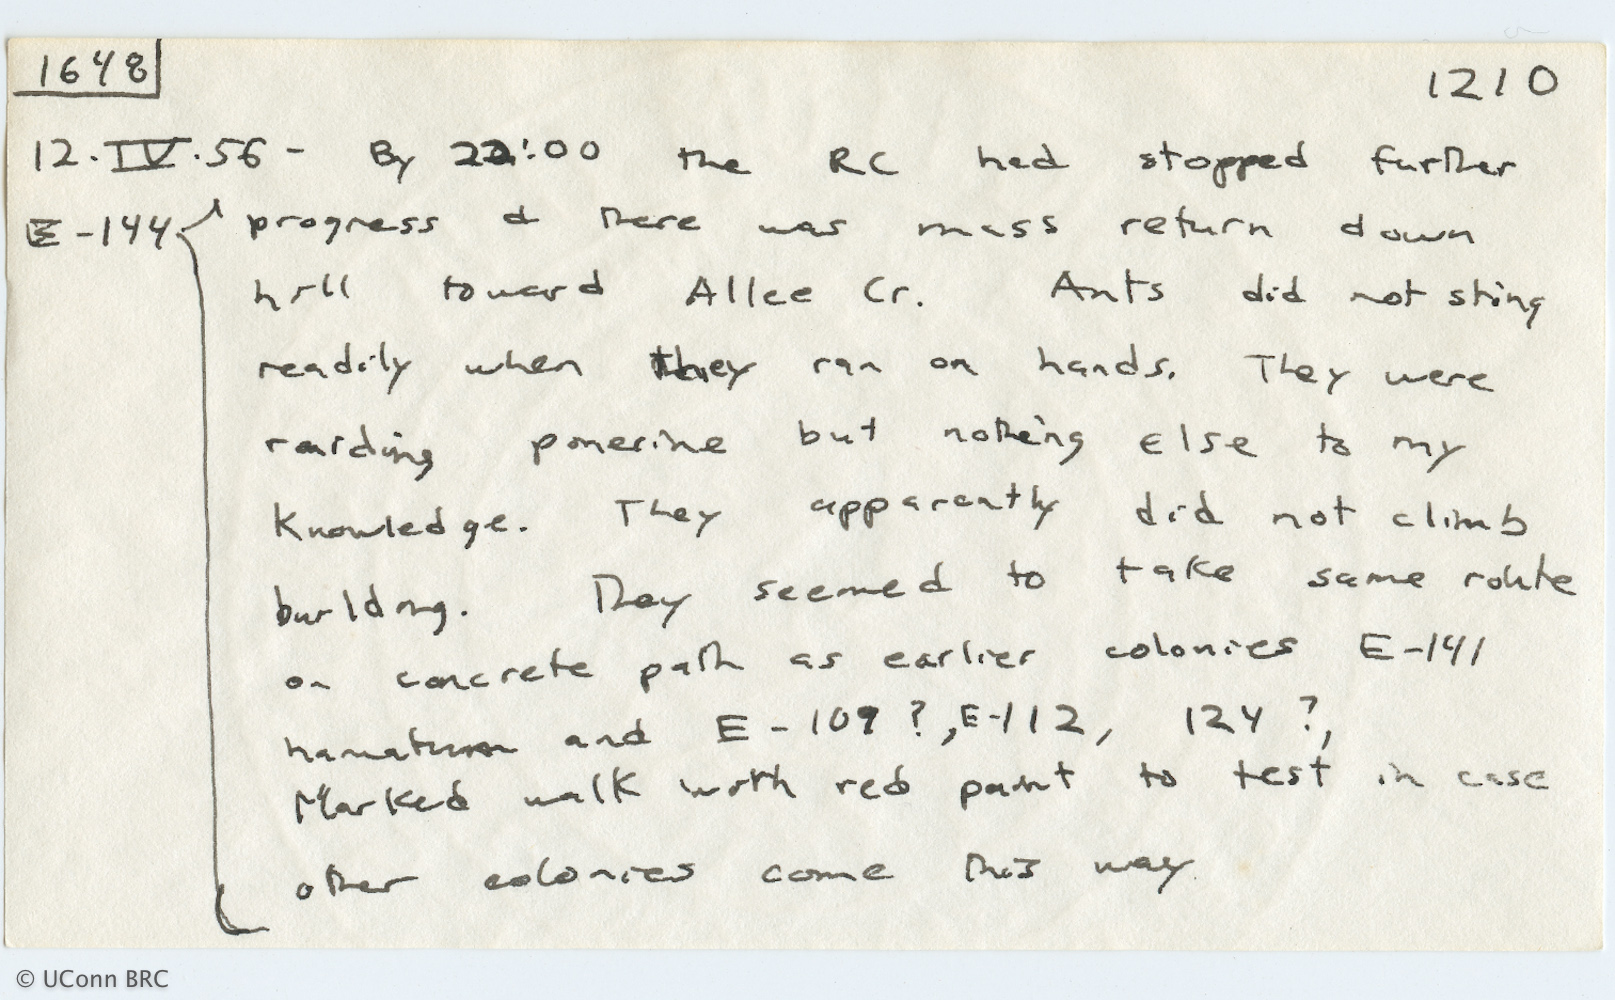 1648
1210
12.IV.56 - By 22:00 the RC had stopped further
E-144 progress & there was mass return down
hill toward Allee Cr. Ants did not sting
readily when they ran on hands. They were
raiding ponerine but nothing else to my
knowledge. They apparently did not climb
building. They seemed to take same route
on concrete path as earlier colonies E-141
hamatum and E-109?, E-112, 124?,
Marked walk with red paint to test in case
other colonies come this way.
© UConn BRC